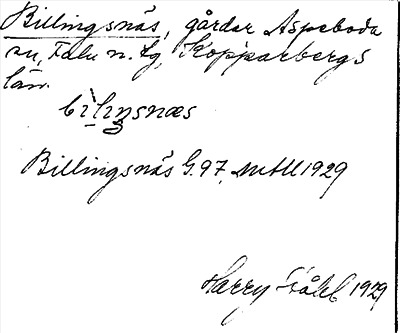 Billingsnäs, gårdar Aspeboda
sn, Falu n. tg, Kopparbergs
län.
bìliŋsnæs
Billingsnäs G. 97, MtLL 1929
Harry Ståhl 1929